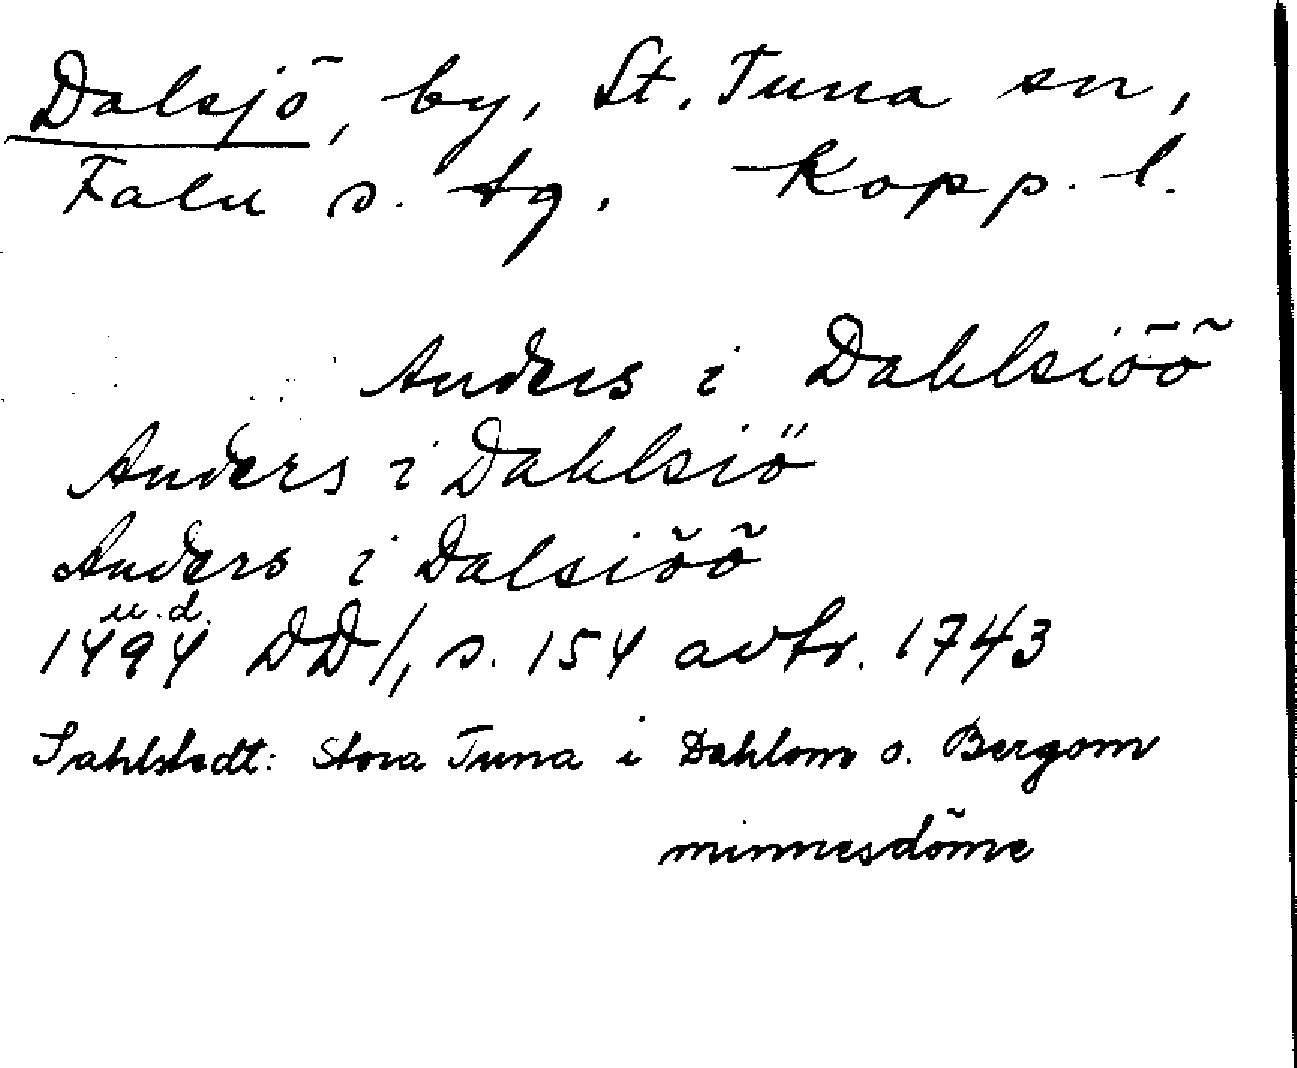 Dalsjö, by, St. Tuna sn,
Falu s. tg. Kopp. l.
Anders i Dahlsiöö
Anders i Dahlsiö
Anders i Dalsiöö
u.d.
1494 DD1, s. 154 avtr. 1743
Sahlstedt: Stora Tuna i Dahlom o. Bergom
minnesdöme